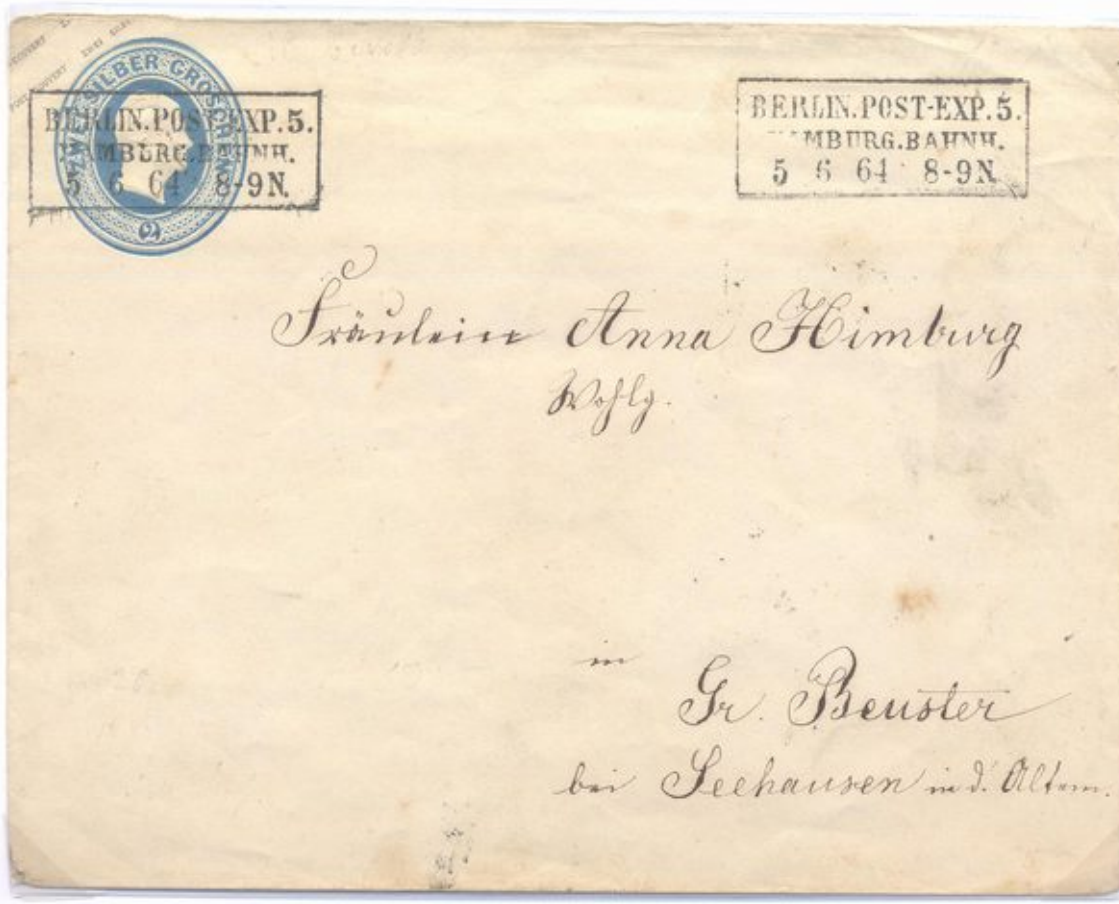 ZWEI SILBER GROSCHEN
2
BERLIN.POST-EXP.5.
HAMBURG.BAHNH.
5 6 64 8-9N.
BERLIN.POST-EXP.5.
MBURG.BAHNH.
5 6 64 8-9N
Fräulein Anna Himburg
Wohlg.
in
Gr. Beuster
bei Seehausen in d. Altem.